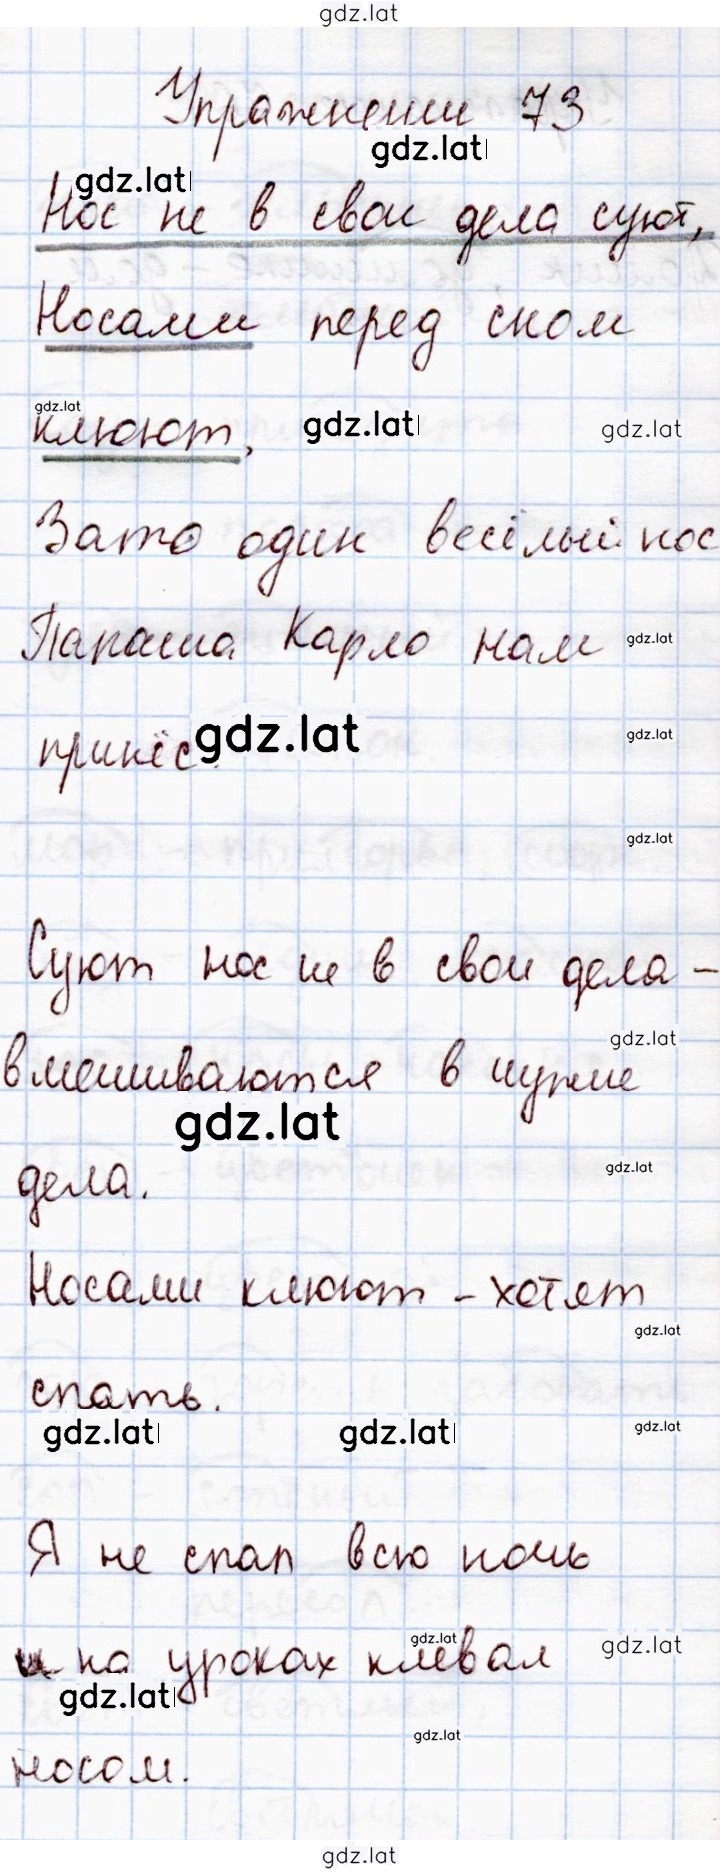 gdz.lat
Упражнении 73
gdz.lat
gdz.lat
Нос не в свои дела суют,
Носами перед сном
gdz.lat
клюют,
gdz.lat
gdz.lat
Зато один весёлый нос
Папаша Карло нам
gdz.lat
принёс.
gdz.lat
gdz.lat
gdz.lat
Суют нос не в свои дела –
gdz.lat
вмешиваются в чужие
gdz.lat
дела.
gdz.lat
Носами клюют – хотят
gdz.lat
спать.
gdz.lat
gdz.lat
gdz.lat
Я не спал всю ночь
и на уроках клевал
gdz.lat
gdz.lat
gdz.lat
gdz.lat
носом.
gdz.lat